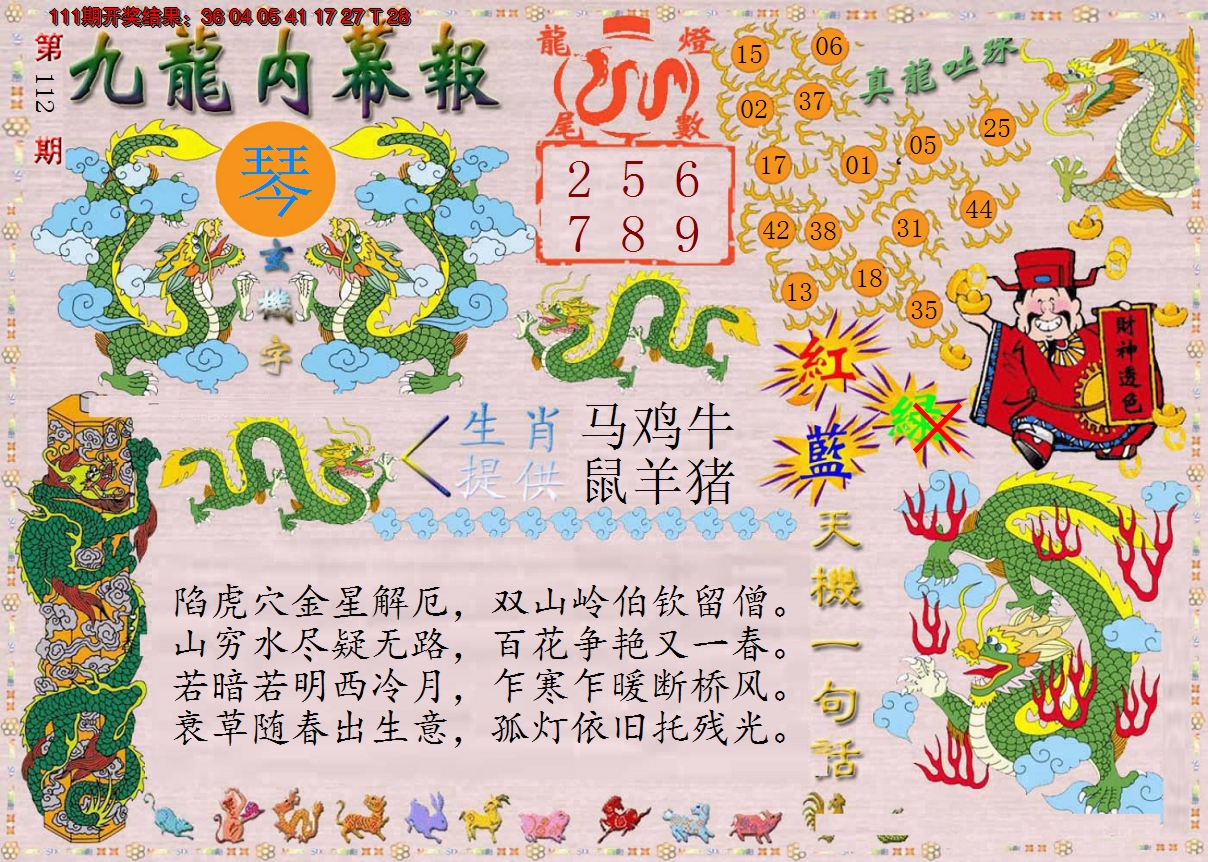 111期开奖结果：36 04 05 41 17 27 T 28
第112期
九龍内幕報
琴
玄機字
龍燈
尾數
2 5 6
7 8 9
真龍吐珠
15 06
02 37
17 01 05 25
42 38 31 44
13 18 35
紅
綠
藍
財神透色
生肖 马鸡牛
提供 鼠羊猪
天機一句話
陷虎穴金星解厄，双山岭伯钦留僧。
山穷水尽疑无路，百花争艳又一春。
若暗若明西冷月，乍寒乍暖断桥风。
衰草随春出生意，孤灯依旧托残光。